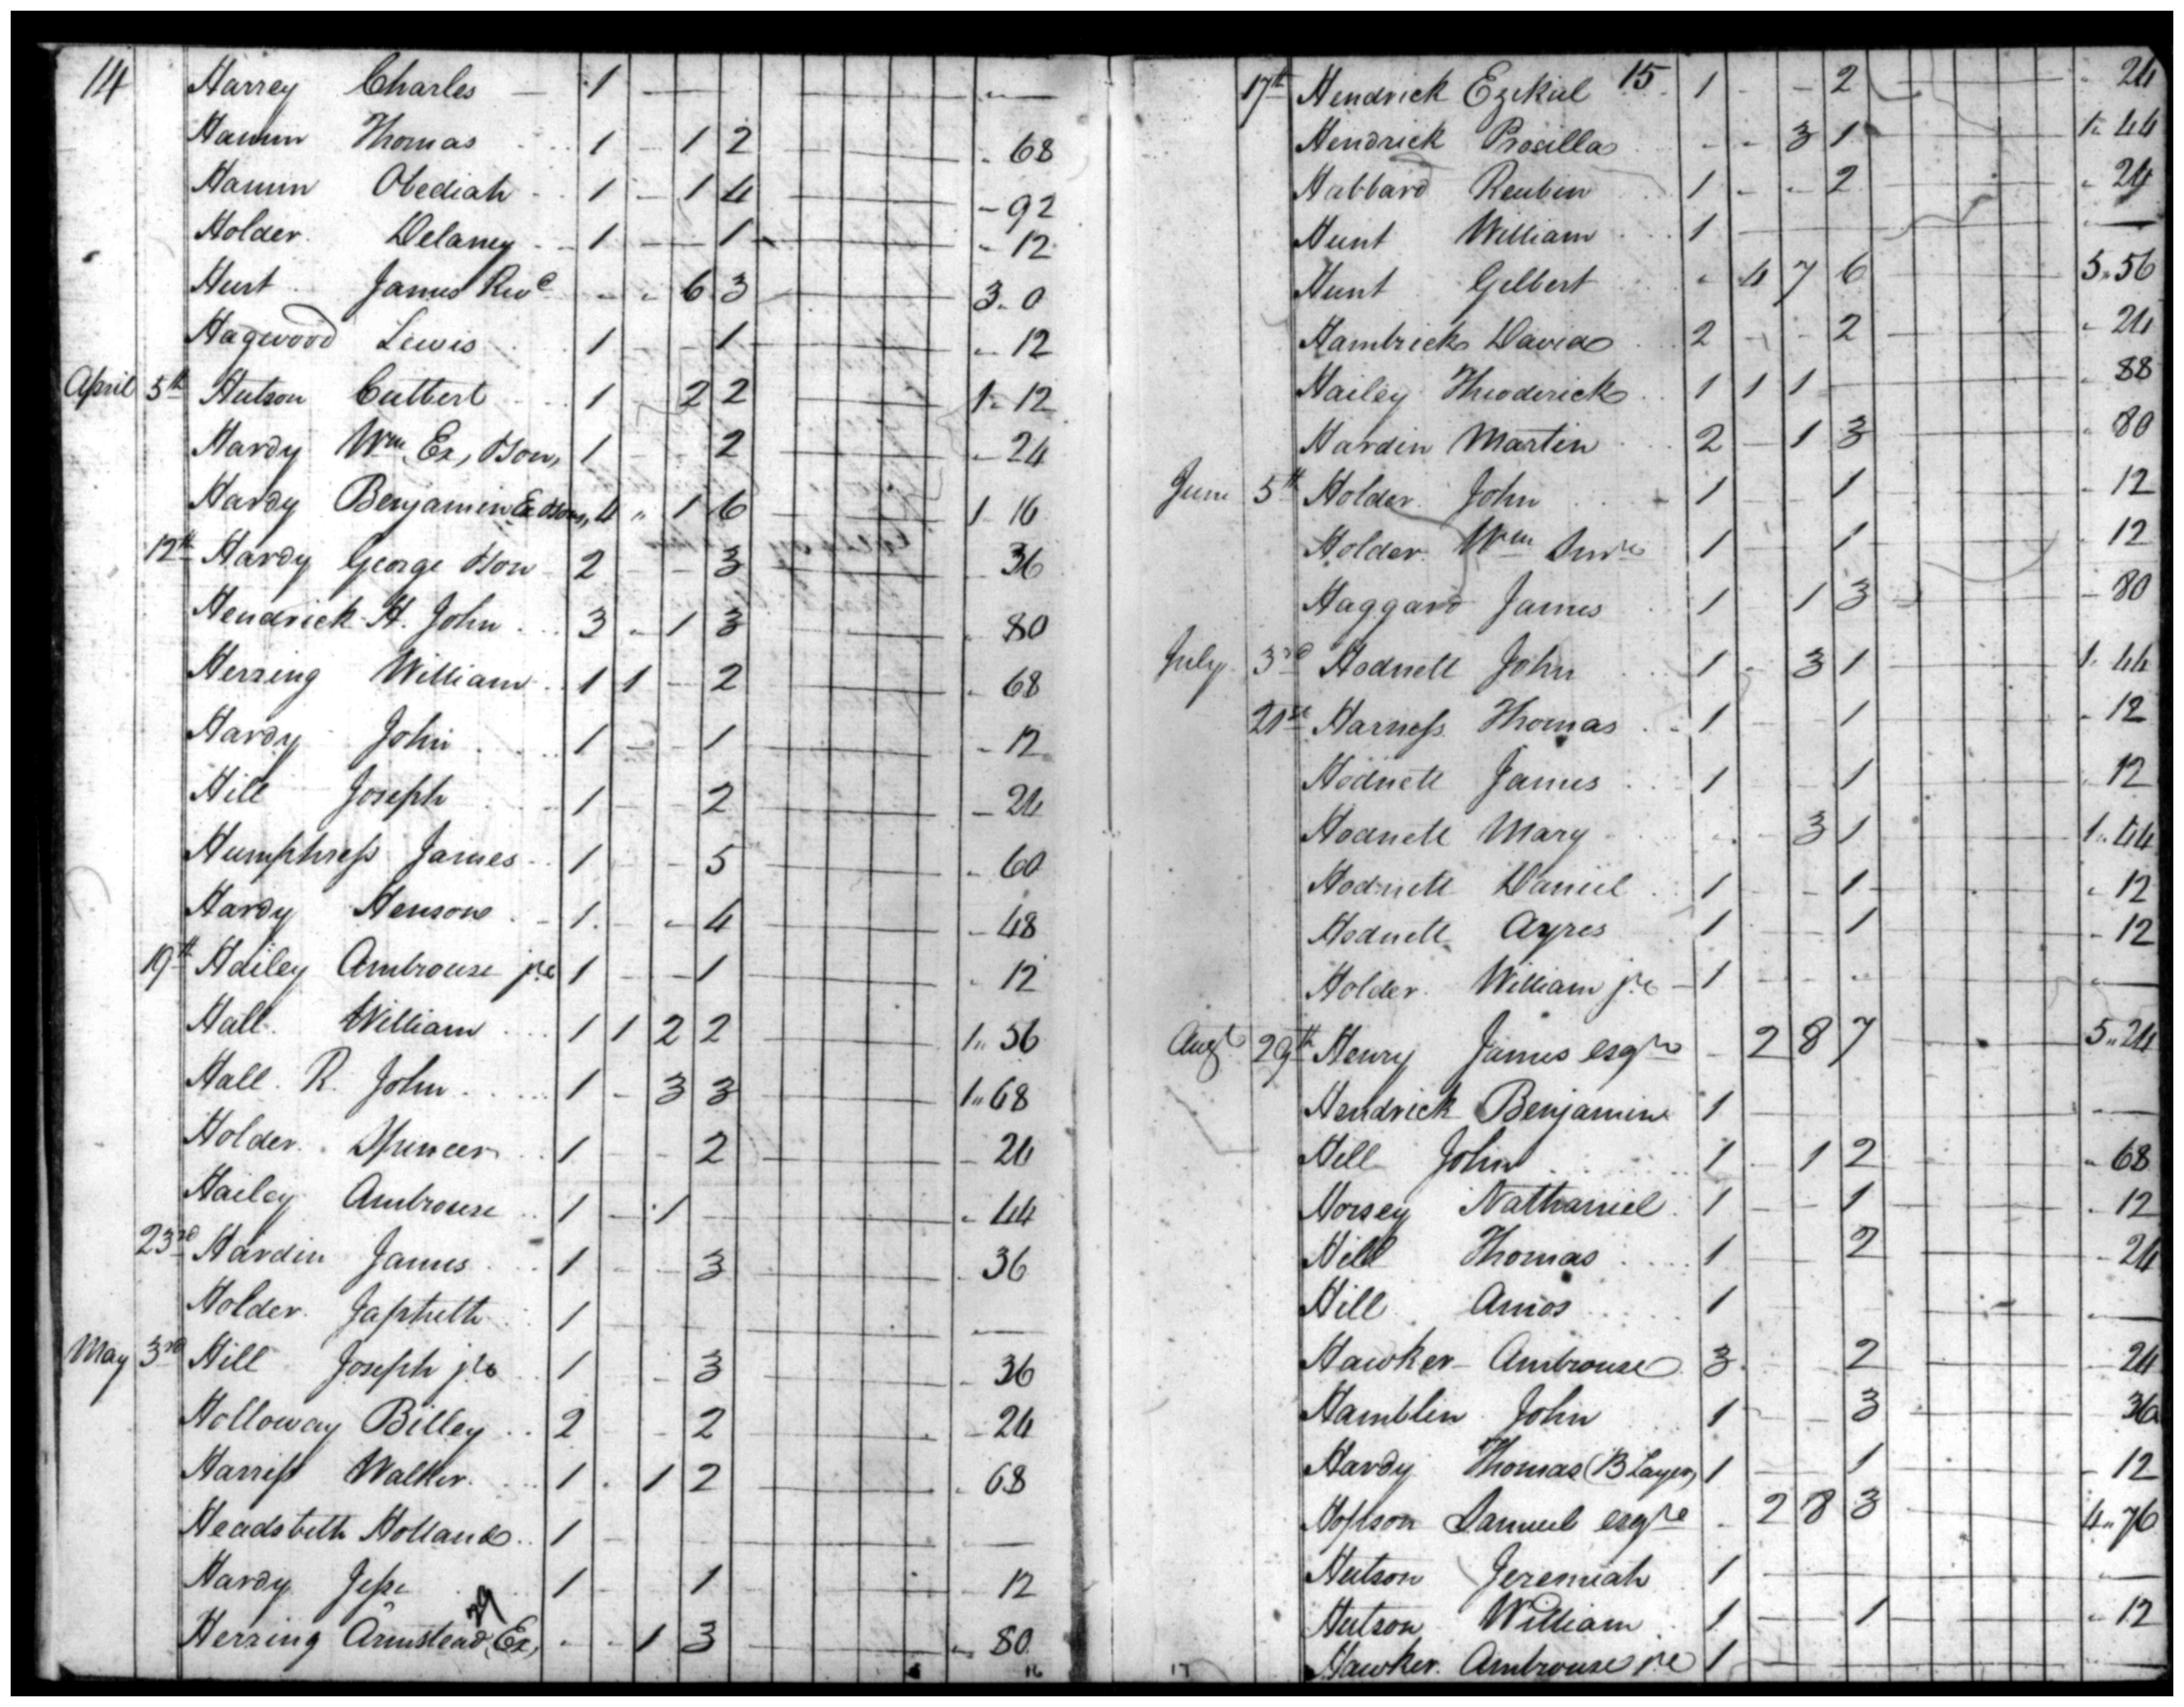 14 Harrey Charles — 1 — — — — 
Hamm Thomas 1 - 1 2 — - 68
Hamm Obediah 1 - 1 4 — - 92
Holder Delaney 1 — — 1 — - 12
Hurt James Revd - - 6 3 — 3. 0
Hagwood Lewis 1 - - 1 — - 12
April 5th Hutson Cutbert 1 - 2 2 — 1. 12
Hardy Wm Ex, Bon, 1 - - 2 — - 24
Hardy Benjamin 4 " 1 6 — 1 16
12th Hardy George Bon 2 - - 3 — 36
Hendrick H. John 3 - 1 3 — - 80
Herring William 1 1 - 2 — - 68
Hardy John 1 - - 1 — - 12
Hill Joseph 1 - - 2 — - 24
Humphress James 1 - - 5 — - 60
Hardy Henson 1 - - 4 — - 48
19th Hailey Ambrouse jr 1 - - 1 — - 12
Hall William 1 1 2 2 — 1" 56
Hall R. John 1 - 3 3 — 1" 68
Holder Spencer 1 - - 2 — - 24
Hailey Ambrouse 1 - 1 — - 44
23rd Hardin James 1 - - 3 — - 36
Holder Japheth 1 — —
May 3rd Hill Joseph jr 1 - - 3 — - 36
Holloway Billey 2 - - 2 — - 24
Harriss Walker 1 - 1 2 — - 68
Headsbeth Holland 1 — —
Hardy Jesse 1 - - 1 — - 12
Herring Armstead, Ex, - - 1 3 — - 80
16
15
17th Hendrick Ezekiel 1 - - 2 — - 24
Hendrick Procilla - - 3 1 — 1. 44
Habbard Reuben 1 - - 2 — - 24
Hunt William 1 — —
Hunt Gilbert - 4 7 6 — 5.. 56
Hambrick David 2 - - 2 — - 24
Hailey Theoderick 1 1 1 — - 88
Hardin Martin 2 - 1 3 — - 80
June 5th Holder John 1 - - 1 — - 12
Holder Wm Senr 1 - - 1 — - 12
Haggard James 1 1 3 — - 80
July 3rd Hodnett John 1 - 3 1 — 1. 44
21st Harness Thomas 1 - - 1 — - 12
Hodnett James 1 - - 1 — - 12
Hodnett Mary - - 3 1 — 1.. 44
Hodnett Daniel 1 - - 1 — - 12
Hodnett Ayres 1 - - 1 — - 12
Holder William jr 1 - - - — —
Augt 29th Henry James esqr - 2 8 7 — 5.. 24
Hendrick Benjamin 1 — —
Hill John 1 - 1 2 — - 68
Horsey Nathaniel 1 - - 1 — - 12
Hill Thomas 1 - - 2 — - 24
Hill Amos 1 — —
Hawker Ambrouse 3 - - 2 — - 24
Hamblen John 1 - - 3 — 36
Hardy Thomas (B Layer) 1 - - 1 — - 12
Hopson Samuel esqre - 2 8 3 — 4.. 76
Hutson Jeremiah 1 — —
Hutson William 1 — 1 — - 12
Hawker Ambrouse jr 1 — —
17